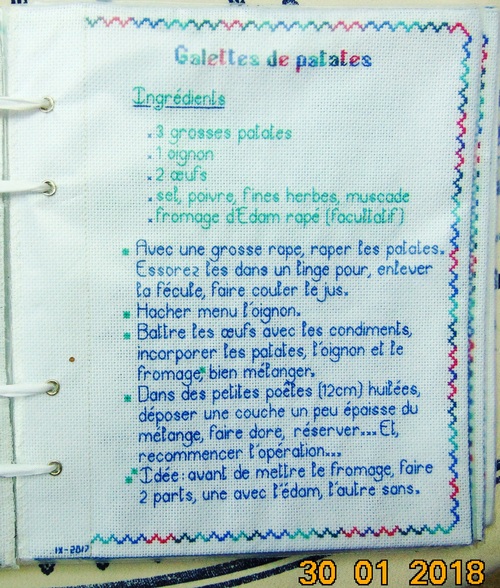 Galettes de patates
Ingrédients
. 3 grosses patates
. 1 oignon
. 2 œufs
. sel, poivre, fines herbes, muscade
. fromage d'Edam rapé (facultatif)
Avec une grosse rape, raper les patates.
Essorez les dans un linge pour, enlever
la fécule, faire couler le jus.
Hacher menu l'oignon.
Battre les œufs avec les condiments,
incorporer les patates, l'oignon et le
fromage, bien mélanger.
Dans des petites poêles (12cm) huilées,
déposer une couche un peu épaisse du
mélange, faire dore, réserver... Et,
recommencer l'opération...
Idée: avant de mettre le fromage, faire
2 parts, une avec l'édam, l'autre sans.
IX-2017
30 01 2018